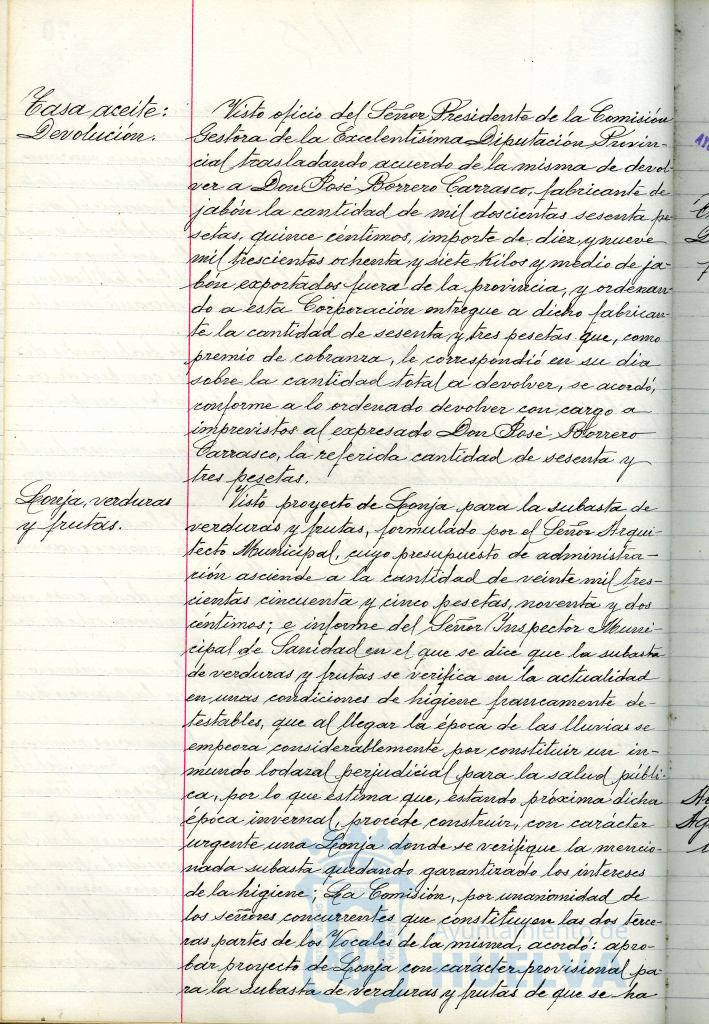 Tasa aceite:
Devolución.
Visto oficio del Señor Presidente de la Comisión
Gestora de la Excelentísima Diputación Provin-
cial trasladando acuerdo de la misma de devol-
ver a Don José Borrero Carrasco, fabricante de
jabón la cantidad de mil doscientas sesenta pe-
setas, quince céntimos, importe de diez y nueve
mil trescientos ochenta y siete kilos y medio de ja-
bón exportados fuera de la provincia, y ordenan-
do a esta Corporación entregue a dicho fabrican-
te la cantidad de sesenta y tres pesetas que, como
premio de cobranza, le correspondió en su dia
sobre la cantidad total a devolver, se acordó,
conforme a lo ordenado devolver con cargo a
imprevistos al expresado Don José Borrero
Carrasco, la referida cantidad de sesenta y
tres pesetas.
Lonja, verduras
y frutas.
Visto proyecto de Lonja para la subasta de
verduras y frutas, formulado por el Señor Arqui-
tecto Municipal, cuyo presupuesto de administra-
ción asciende a la cantidad de veinte mil tres-
cientas cincuenta y cinco pesetas, noventa y dos
céntimos; e informe del Señor Inspector Muni-
cipal de Sanidad en el que se dice que la subasta
de verduras y frutas se verifica en la actualidad
en unas condiciones de higiene francamente de-
testables, que al llegar la época de las lluvias se
empeora considerablemente por constituir un in-
mundo lodazal perjudicial para la salud públi-
ca, por lo que estima que, estando próxima dicha
época invernal, procede construir, con carácter
urgente una Lonja donde se verifique la mencio-
nada subasta quedando garantizado los intereses
de la higiene; La Comisión, por unanomidad de
los señores concurrentes que constituyen las dos terce-
ras partes de los Vocales de la misma, acordó: apro-
bar proyecto de Lonja con carácter provisional pa-
ra la subasta de verduras y frutas de que se ha
Ayuntamiento de
HUELVA